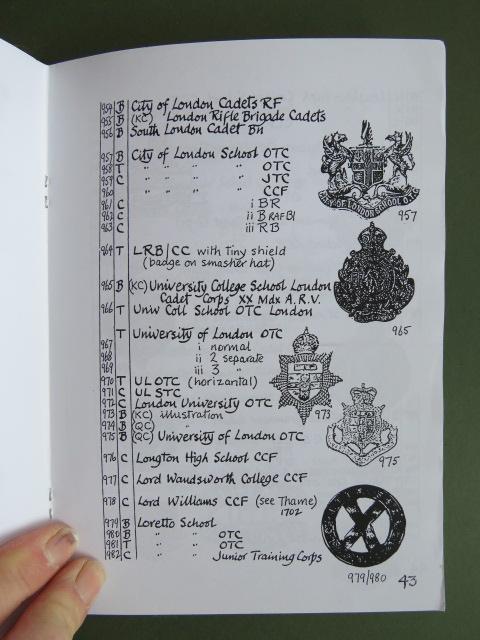 954 B City of London Cadets RF
955 B (KC) London Rifle Brigade Cadets
956 B South London Cadet Bn
957 B City of London School OTC
958 T " " " " OTC
959 C " " " " JTC
960 " " " " CCF
961 C i BR
962 C ii B RAF BI
963 C iii RB
964 T LRB/CC with tiny shield
(badge on smasher hat)
965 B (KC) University College School London
Cadet Corps XX Mdx A.R.V.
966 T Univ Coll School OTC London
T University of London OTC
967 i normal
968 ii 2 separate
969 iii 3 "
970 T ULOTC (horizantal)
971 C ULSTC
972 C London University OTC
973 B (KC) illustration
974 B (QC) "
975 B (QC) University of London OTC
976 C Longton High School CCF
977 C Lord Wandsworth College CCF
978 C Lord Williams CCF (see Thame)
1702
979 B Loretto School
980 B " " OTC
981 T " " OTC
982 C " " Junior Training Corps
CITY OF LONDON SCHOOL O.T.C.
957
965
973
975
979/980
43